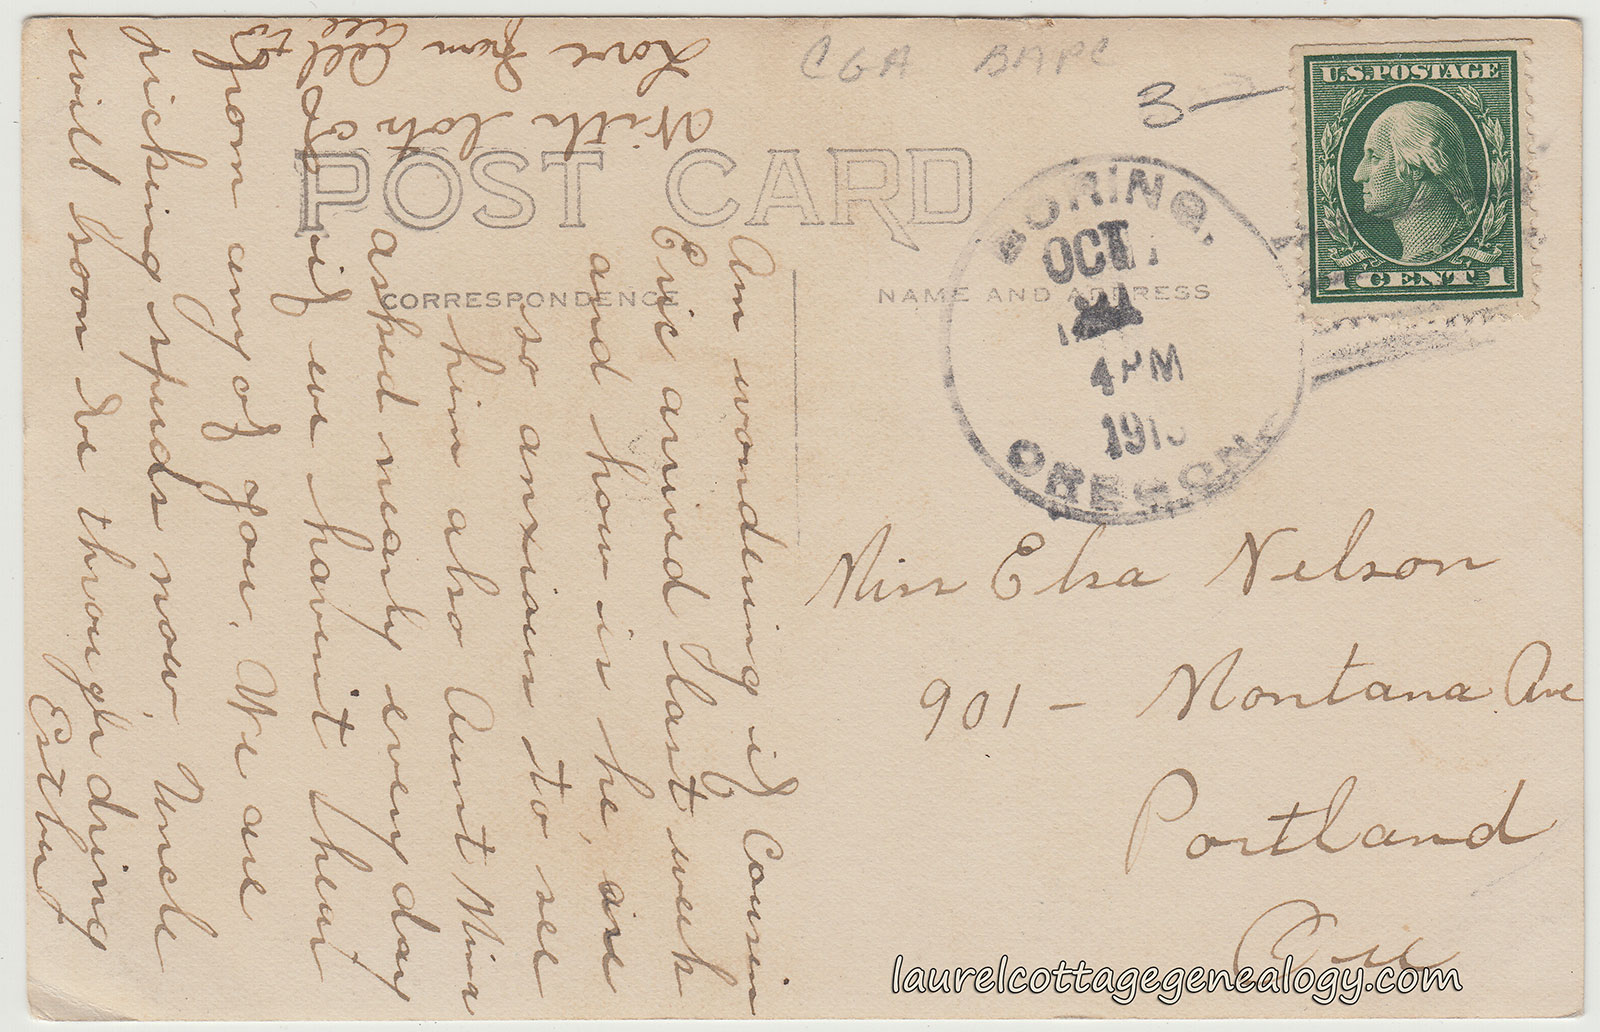 CGA BAPC
3
U.S. POSTAGE
1 CENT 1
POST CARD
CORRESPONDENCE
NAME AND ADDRESS
BORING,
OCT
4 PM
191
OREGON.
Am wondering if Cousin
Eric arrived last week
and how is he, are
so anxious to see
him also Aunt Mina
asked nearly every day
if we havent heard
from any of you. We are
picking spuds now, Uncle
will soon be through dring
With lots of
Love from
all to
all
Miss Elsa Nelson
901 - Montana Ave
Portland
Ore
laurelcottagegenealogy.com